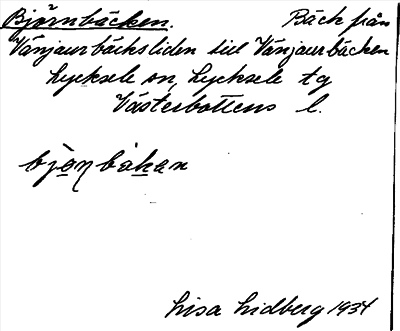 Björnbäcken. Bäck från
Vänjaurbäcksliden till Vänjaurbäcken
Lycksele sn, Lycksele tg
Västerbottens l.
bjönbäkan
Lisa Lidberg 1934